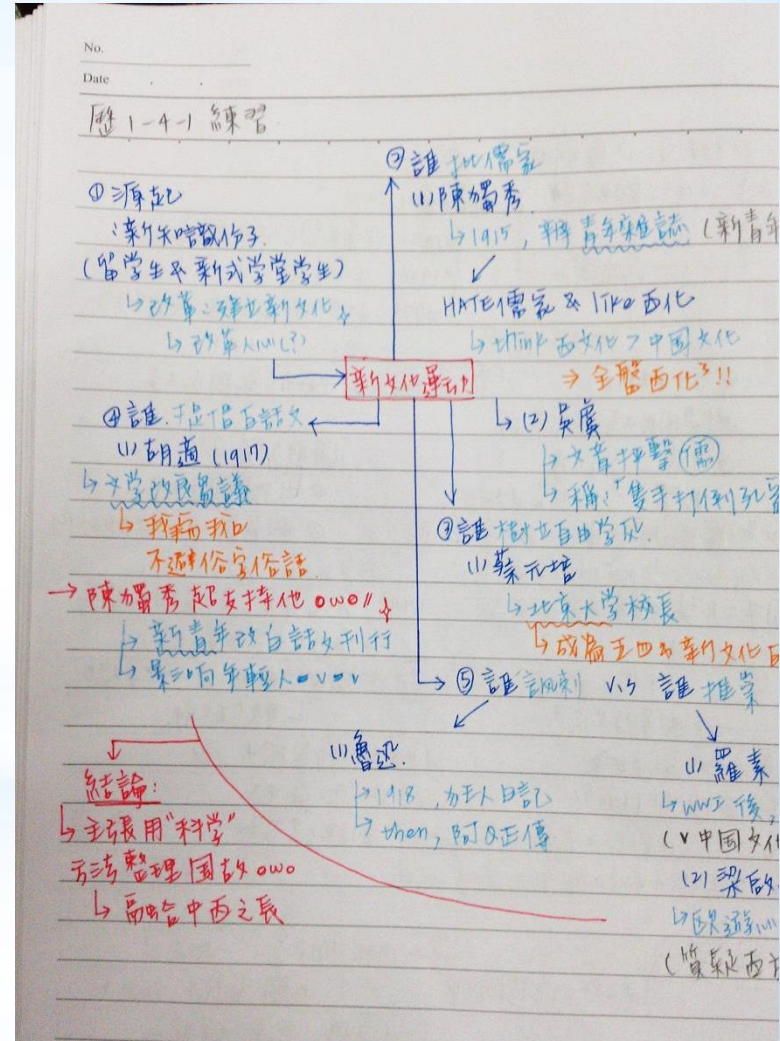 No.
Date
歷1-4-1 練習
①源起
:新知識份子.
(留学生&新式学堂学生)
↳改革:建立新文化
↳改革人心(?)
新文化運動
②誰批儒家
(1)陳獨秀
↳1915, 辦青年雜誌 (新青年
HATE儒家 & like西化
↳think 西文化 > 中国文化
⇒ 全盤西化!!
↳(2)吳虞
↳文章抨擊儒
↳稱:「隻手打倒孔家
③誰樹立自由学风.
(1)蔡元培
↳北京大学校長
↳成為五四&新文化
④誰提倡白話文
(1)胡適(1917)
↳文学改良芻議
↳我手寫我口
不避俗字俗話
→陳獨秀超支持他owo//
↳新青年改白話文刊行
↳影响年輕人
⑤誰諷刺 V.S 誰推崇
(1)魯迅.
↳1918, 狂人日記
↳then, 阿Q正傳
(1)羅素
↳WWI後,
(v中国文化
(2)梁啟
↳歐遊心
(質疑西方
結論:
↳主張用"科学"
方法整理国故owo
↳融合中西之長